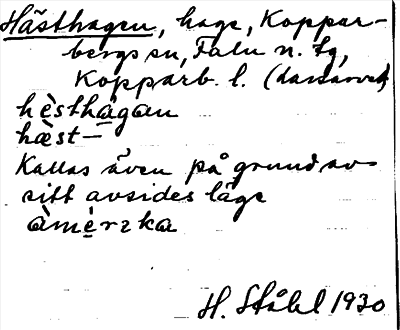 Hästhagen, hage, Koppar-
bergs sn, Falu n. tg,
Kopparb. l. (
hèsthàgan
hæst—
Kallas även på grund av
sitt avsides läge
àmèrika
H. Ståhl 1930